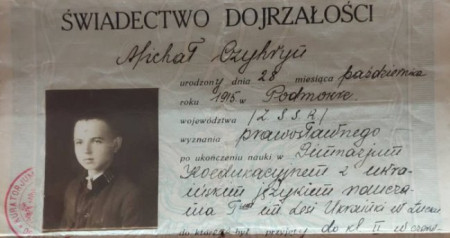 ŚWIADECTWO DOJRZAŁOŚCI
Michał Czykryn
urodzony dnia 28 miesiąca października
roku 1915 w Podmokre
województwa /ZSSR/
wyznania prawosławnego
po ukończeniu nauki w Gimnazjum
Koedukacyjnem z ukra-
ińskim językiem naucza-
nia im Łesi Ukrainki w Łucku
do której był przyjęty do kl. II w